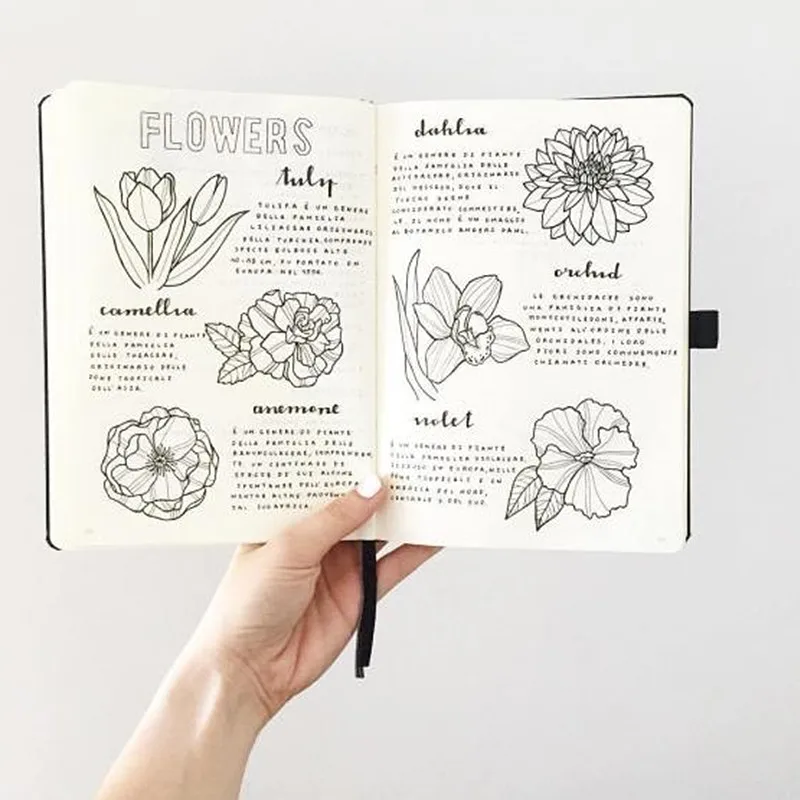 FLOWERS
tulip
TULIPA È UN GENERE
DELLA FAMIGLIA
LILIACEAE ORIGINARIO
DELLA TURCHIA, COMPRENDE
SPECIE BULBOSE ALTE
10-15 CM, FU PORTATO IN
EUROPA NEL
camellia
È UN GENERE DI PIANTE
DELLA FAMIGLIA
DELLE THEACEAE,
ORIGINARIO DELLE
ZONE TROPICALI
DELL'ASIA.
anemone
È UN GENERE DI PIANTE
DELLA FAMIGLIA DELLE
RANUNCULACEAE, COMPRENDEN
TE UN CENTINAIO DI
SPECIE DI CUI ALCUNE
SPONTANEE DELL'EUROPA
MENTRE ALTRE PROVENGONO
DAL SUDAFRICA.
dahlia
È UN GENERE DI PIANTE
DELLA FAMIGLIA DELLE
ASTERACEAE, ORIGINARIO
DEL MESSICO, DOVE IL
TUBERO VIENE
CONSIDERATO COMMESTIBI
LE. IL NOME È UN OMAGGIO
AL BOTANICO ANDERS DAHL.
orchid
LE ORCHIDACEE SONO
UNA FAMIGLIA DI PIANTE
MONOCOTILEDONI, APPARTE
NENTI ALL'ORDINE DELLE
ORCHIDALES, I LORO
FIORI SONO COMUNEMENTE
CHIAMATI ORCHIDEE.
violet
È UN GENERE DI PIANTE
DELLA FAMIGLIA VIOLACEAE,
DIFFUSO IN EUROPA, NELLE
ZONE TROPICALI E IN
AMERICA DEL NORD,
CENTRALE E DEL SUD.